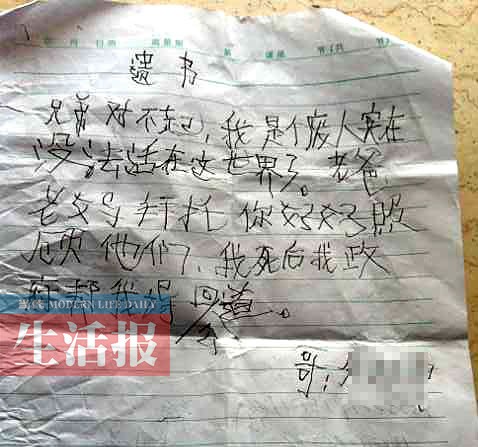 遗书
兄弟对不起，我是个废人实在
没法活在这世界了。老爸
老妈拜托你好好照
顾他们了，我死后找政
府帮我得回道。
公
MODERN LIFE DAILY
生活报
哥：